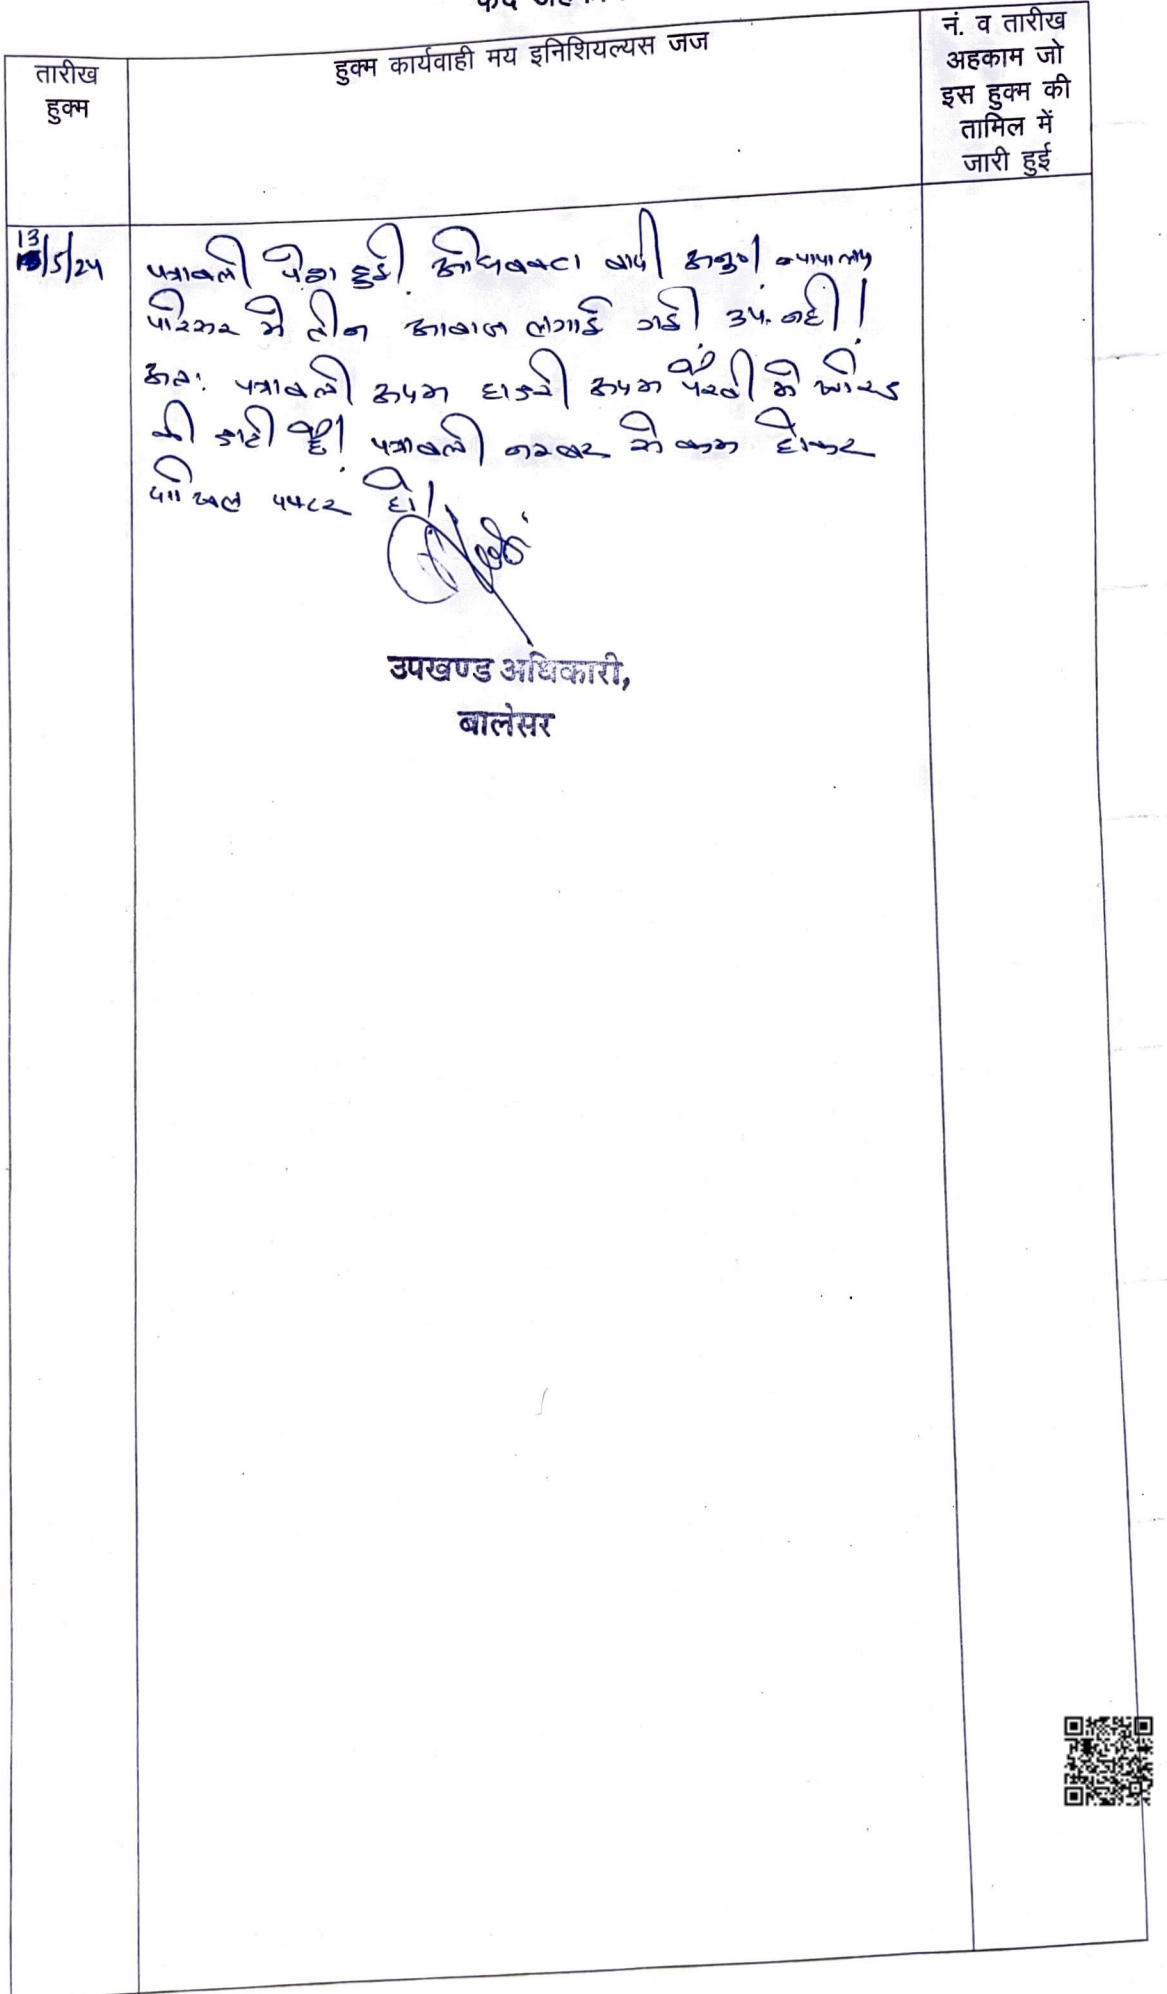 तारीख
हुक्म
हुक्म कार्यवाही मय इनिशियल्यस जज
नं. व तारीख
अहकाम जो
इस हुक्म की
तामिल में
जारी हुई
13/5/24
पत्रावली पेश हुई अधिवक्ता वादी अनु०। न्यायालय
परिसर में तीन आवाज लगाई गई उप. नहीं।
अतः पत्रावली अदम हाजरी अदम पैरवी में खारिज
की जाती है। पत्रावली नम्बर से कम होकर
दाखिल दफ्तर हो।
उपखण्ड अधिकारी,
बालेसर